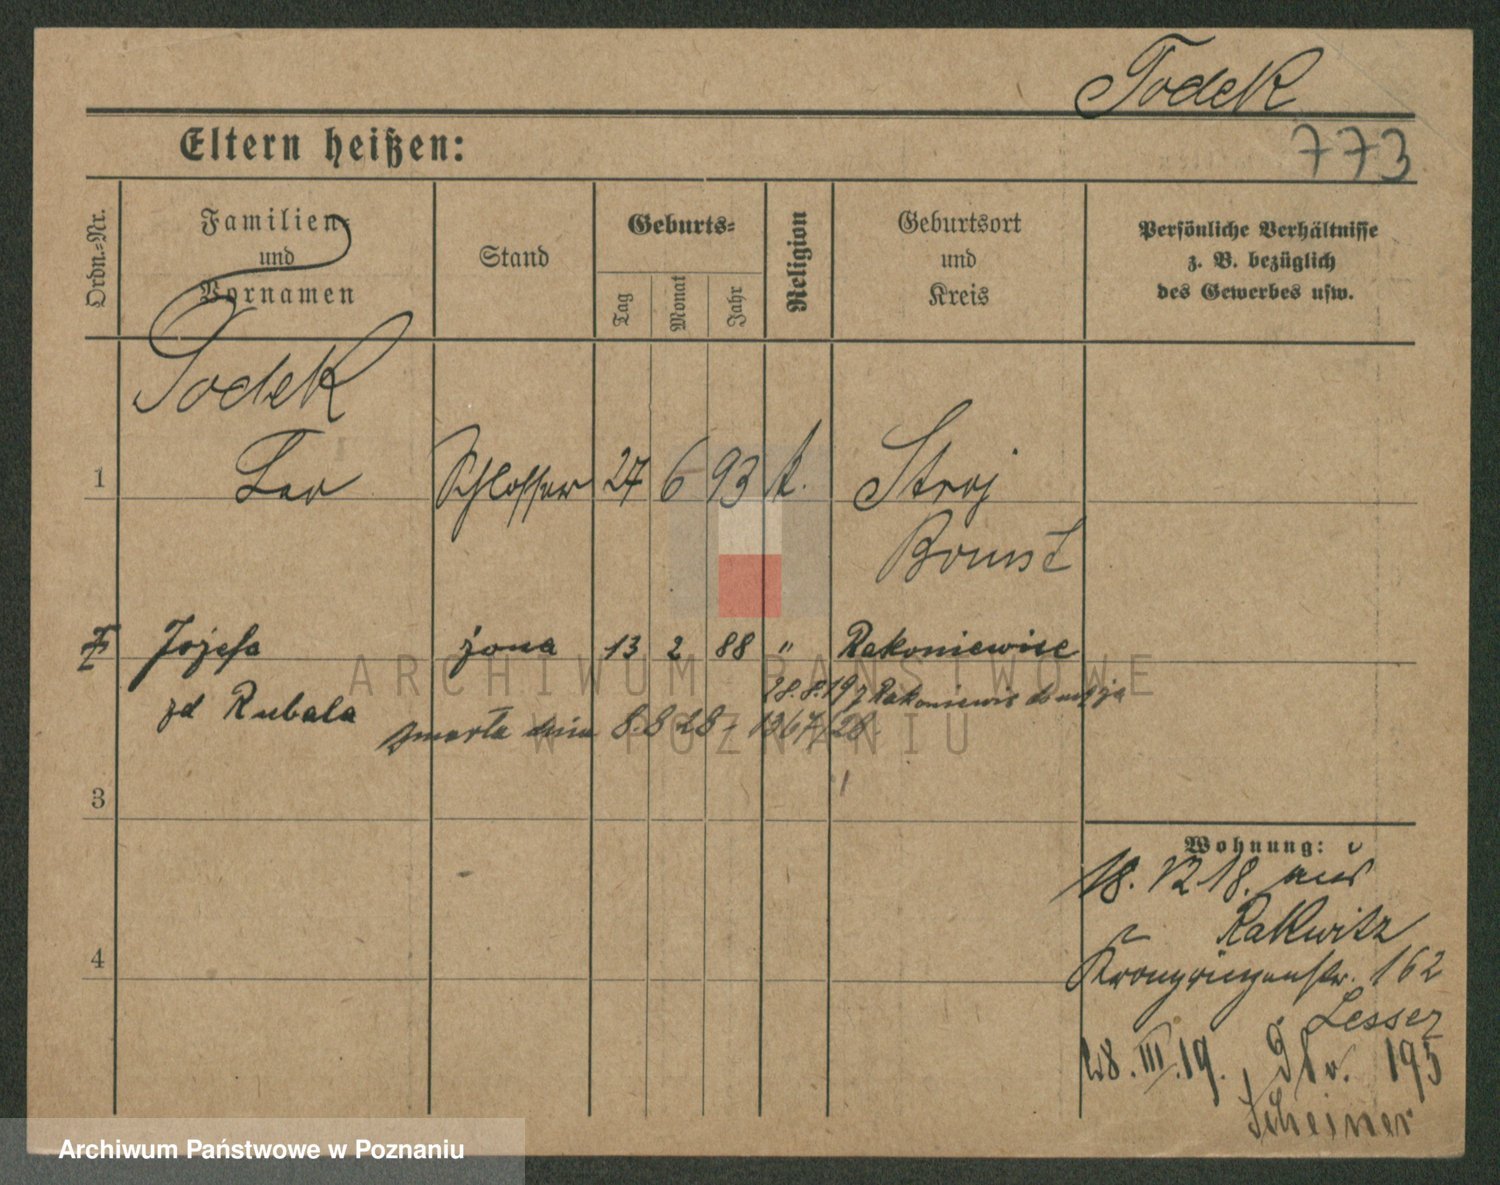 Todek
773
Eltern heißen:
Ordn.-Nr.
Familien-
und
Vornamen
Stand
Geburts-
Tag
Monat
Jahr
Religion
Geburtsort
und
Kreis
Persönliche Verhältnisse
z. B. bezüglich
des Gewerbes usw.
Todek
1 Leo Schlosser 27 6 93 k. Stroj
Bomst
Józefa żona 13 2 88 " Rakoniewice
zd Rubala
28.8.19 z Rakoniewic do
zmarła dnia 8.8 28 - 1367/28
3
4
Wohnung:
18. VI 18. aus
Rakwitz
Kronprinzenstr. 162
Lesser
28. III. 19. 195
Scheiner
ARCHIWUM PAŃSTWOWE
W POZNANIU
Archiwum Państwowe w Poznaniu